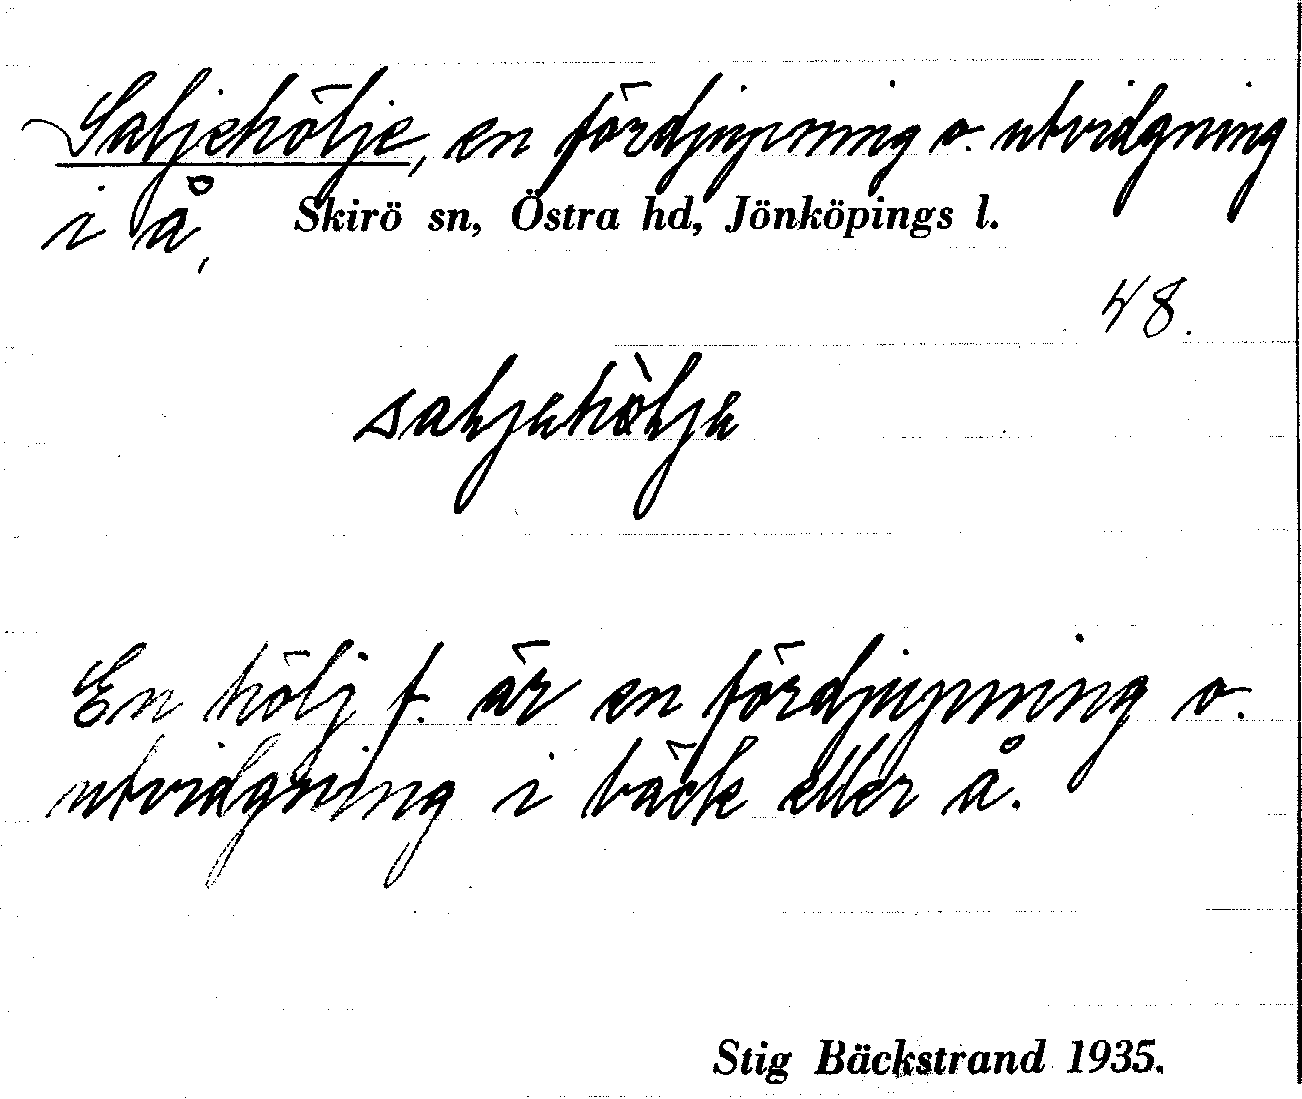 Saljehölje, en fördjupning o. utvidgning
i å, Skirö sn, Östra hd, Jönköpings l.
48.
saljehòlje
En hölj f. är en fördjupning o.
utvidgning i bäck eller å.
Stig Bäckstrand 1935.